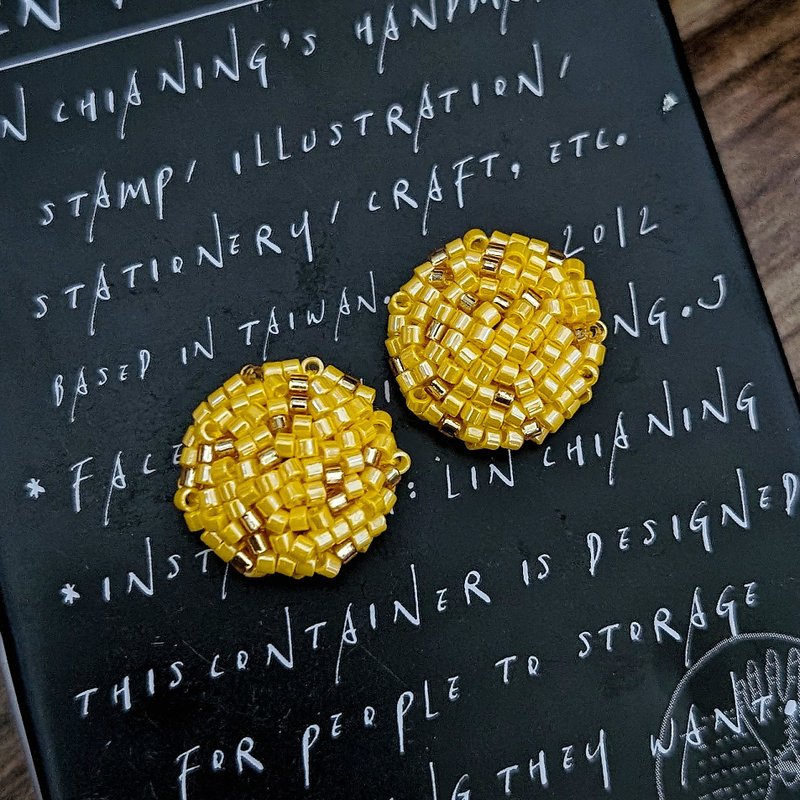 CHIANING'S
STAMP/ ILLUSTRATION/
STATIONERY/ CRAFT, ETC.
BASED IN TAIWAN. 2012
* FACE NG.J
* INSTA : LIN CHIANING
THIS CONTAINER IS DESIGNED
FOR PEOPLE TO STORAGE
THEY WANT.